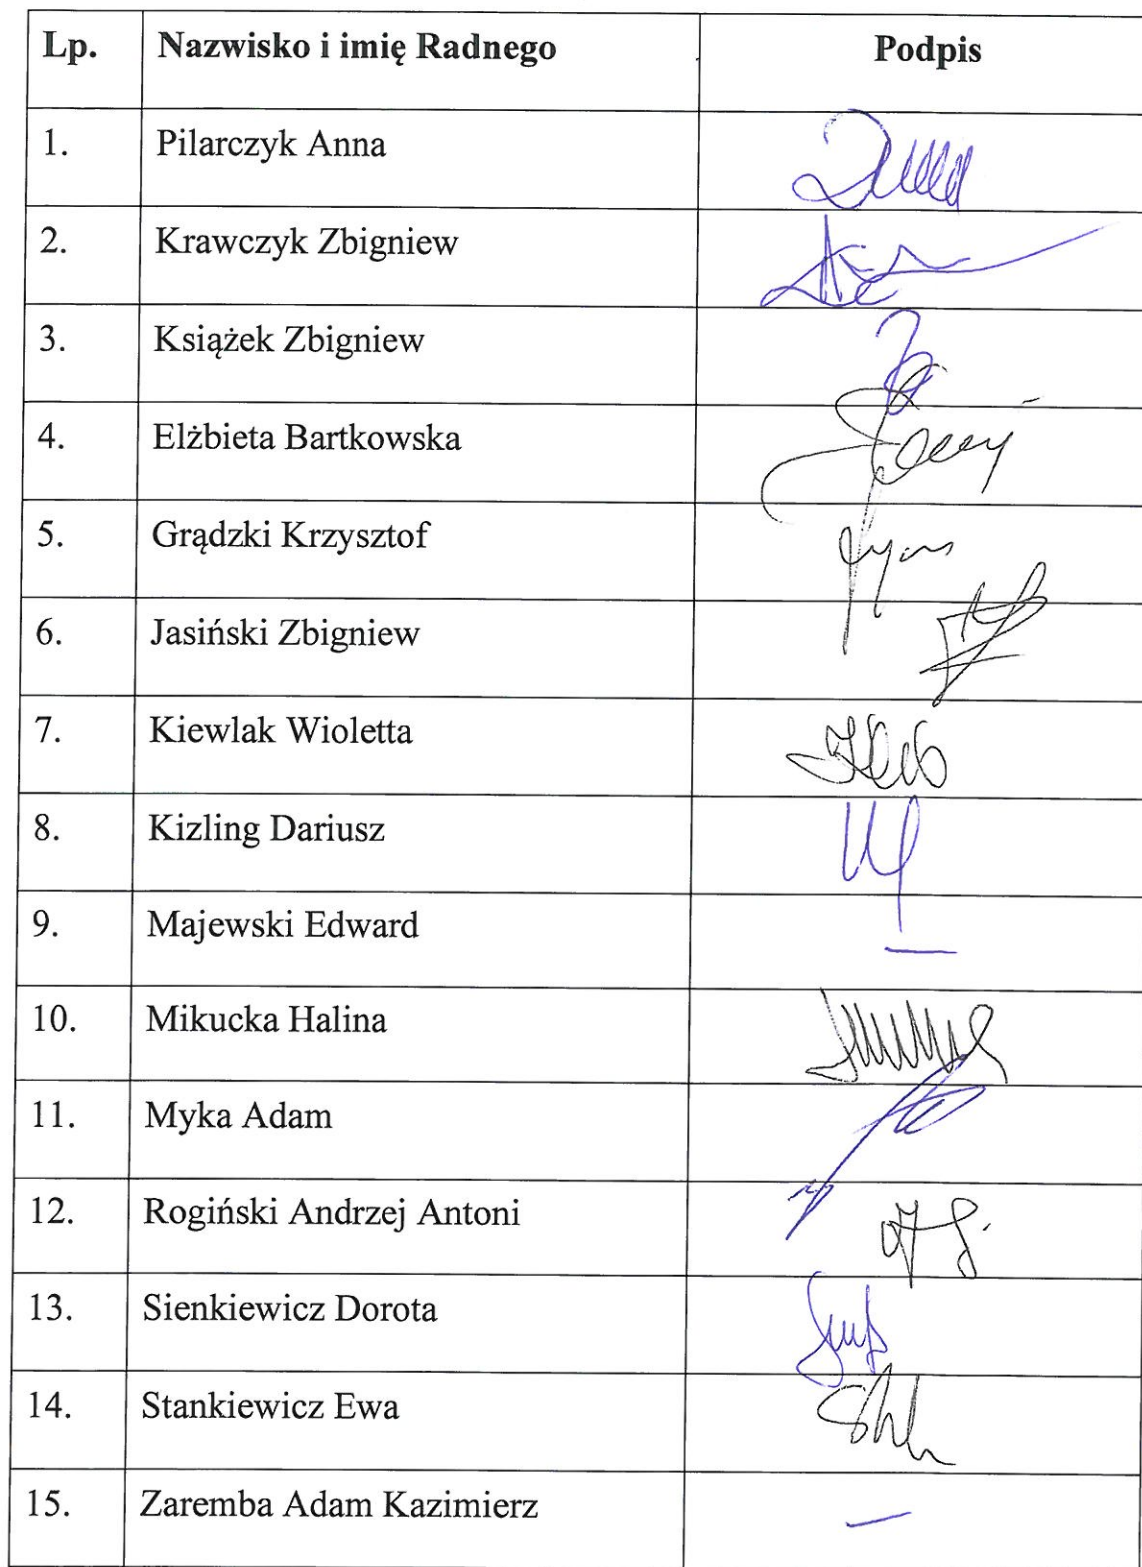 Lp. Nazwisko i imię Radnego Podpis
1. Pilarczyk Anna
2. Krawczyk Zbigniew
3. Książek Zbigniew
4. Elżbieta Bartkowska
5. Grądzki Krzysztof
6. Jasiński Zbigniew
7. Kiewlak Wioletta
8. Kizling Dariusz
9. Majewski Edward —
10. Mikucka Halina
11. Myka Adam
12. Rogiński Andrzej Antoni
13. Sienkiewicz Dorota
14. Stankiewicz Ewa
15. Zaremba Adam Kazimierz —